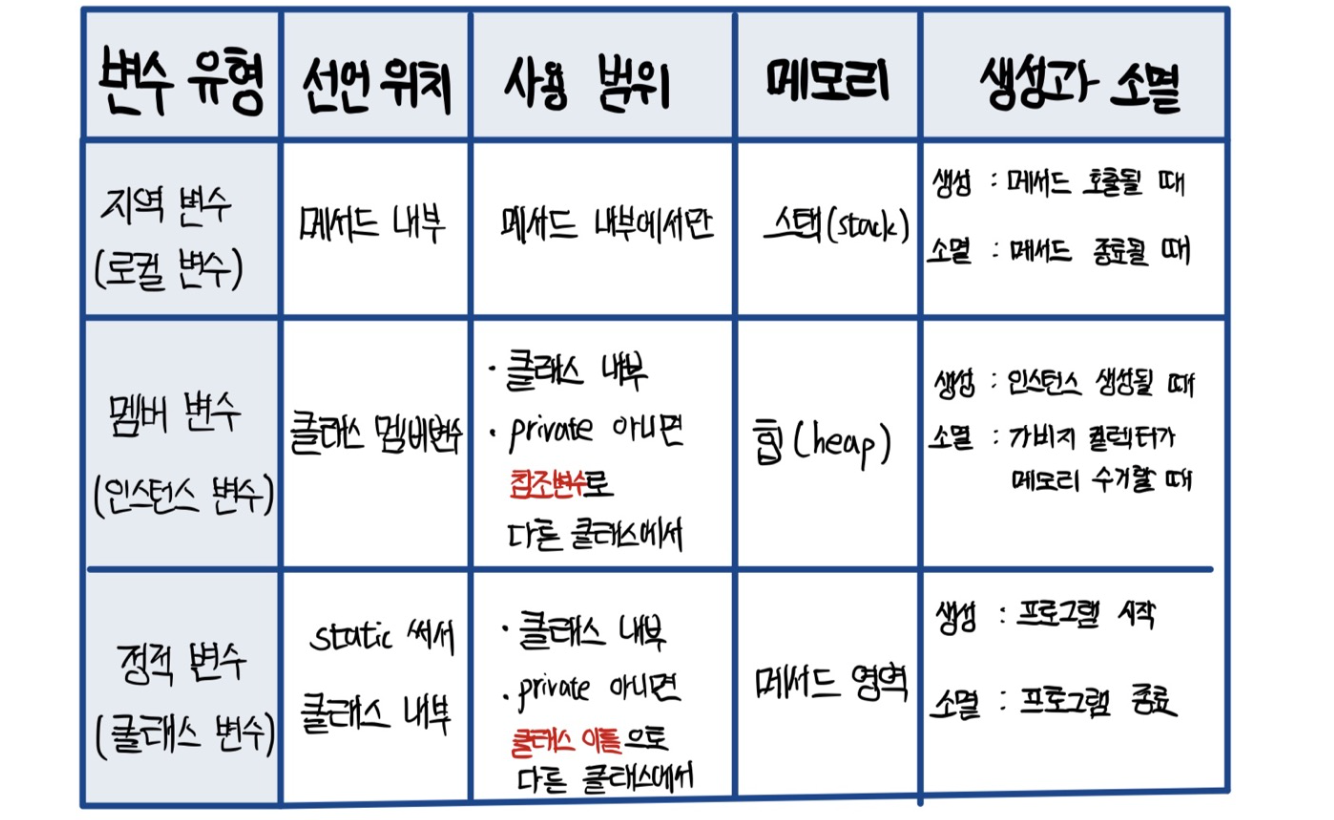 변수 유형
선언 위치
사용 범위
메모리
생성과 소멸
지역 변수
(로컬 변수)
메서드 내부
메서드 내부에서만
스택(stack)
생성 : 메서드 호출될 때
소멸 : 메서드 종료될 때
멤버 변수
(인스턴스 변수)
클래스 멤버변수
· 클래스 내부
· private 아니면
참조변수로
다른 클래스에서
힙(heap)
생성 : 인스턴스 생성될 때
소멸 : 가비지 컬렉터가
메모리 수거할 때
정적 변수
(클래스 변수)
static 써서
클래스 내부
· 클래스 내부
· private 아니면
클래스 이름으로
다른 클래스에서
메서드 영역
생성 : 프로그램 시작
소멸 : 프로그램 종료